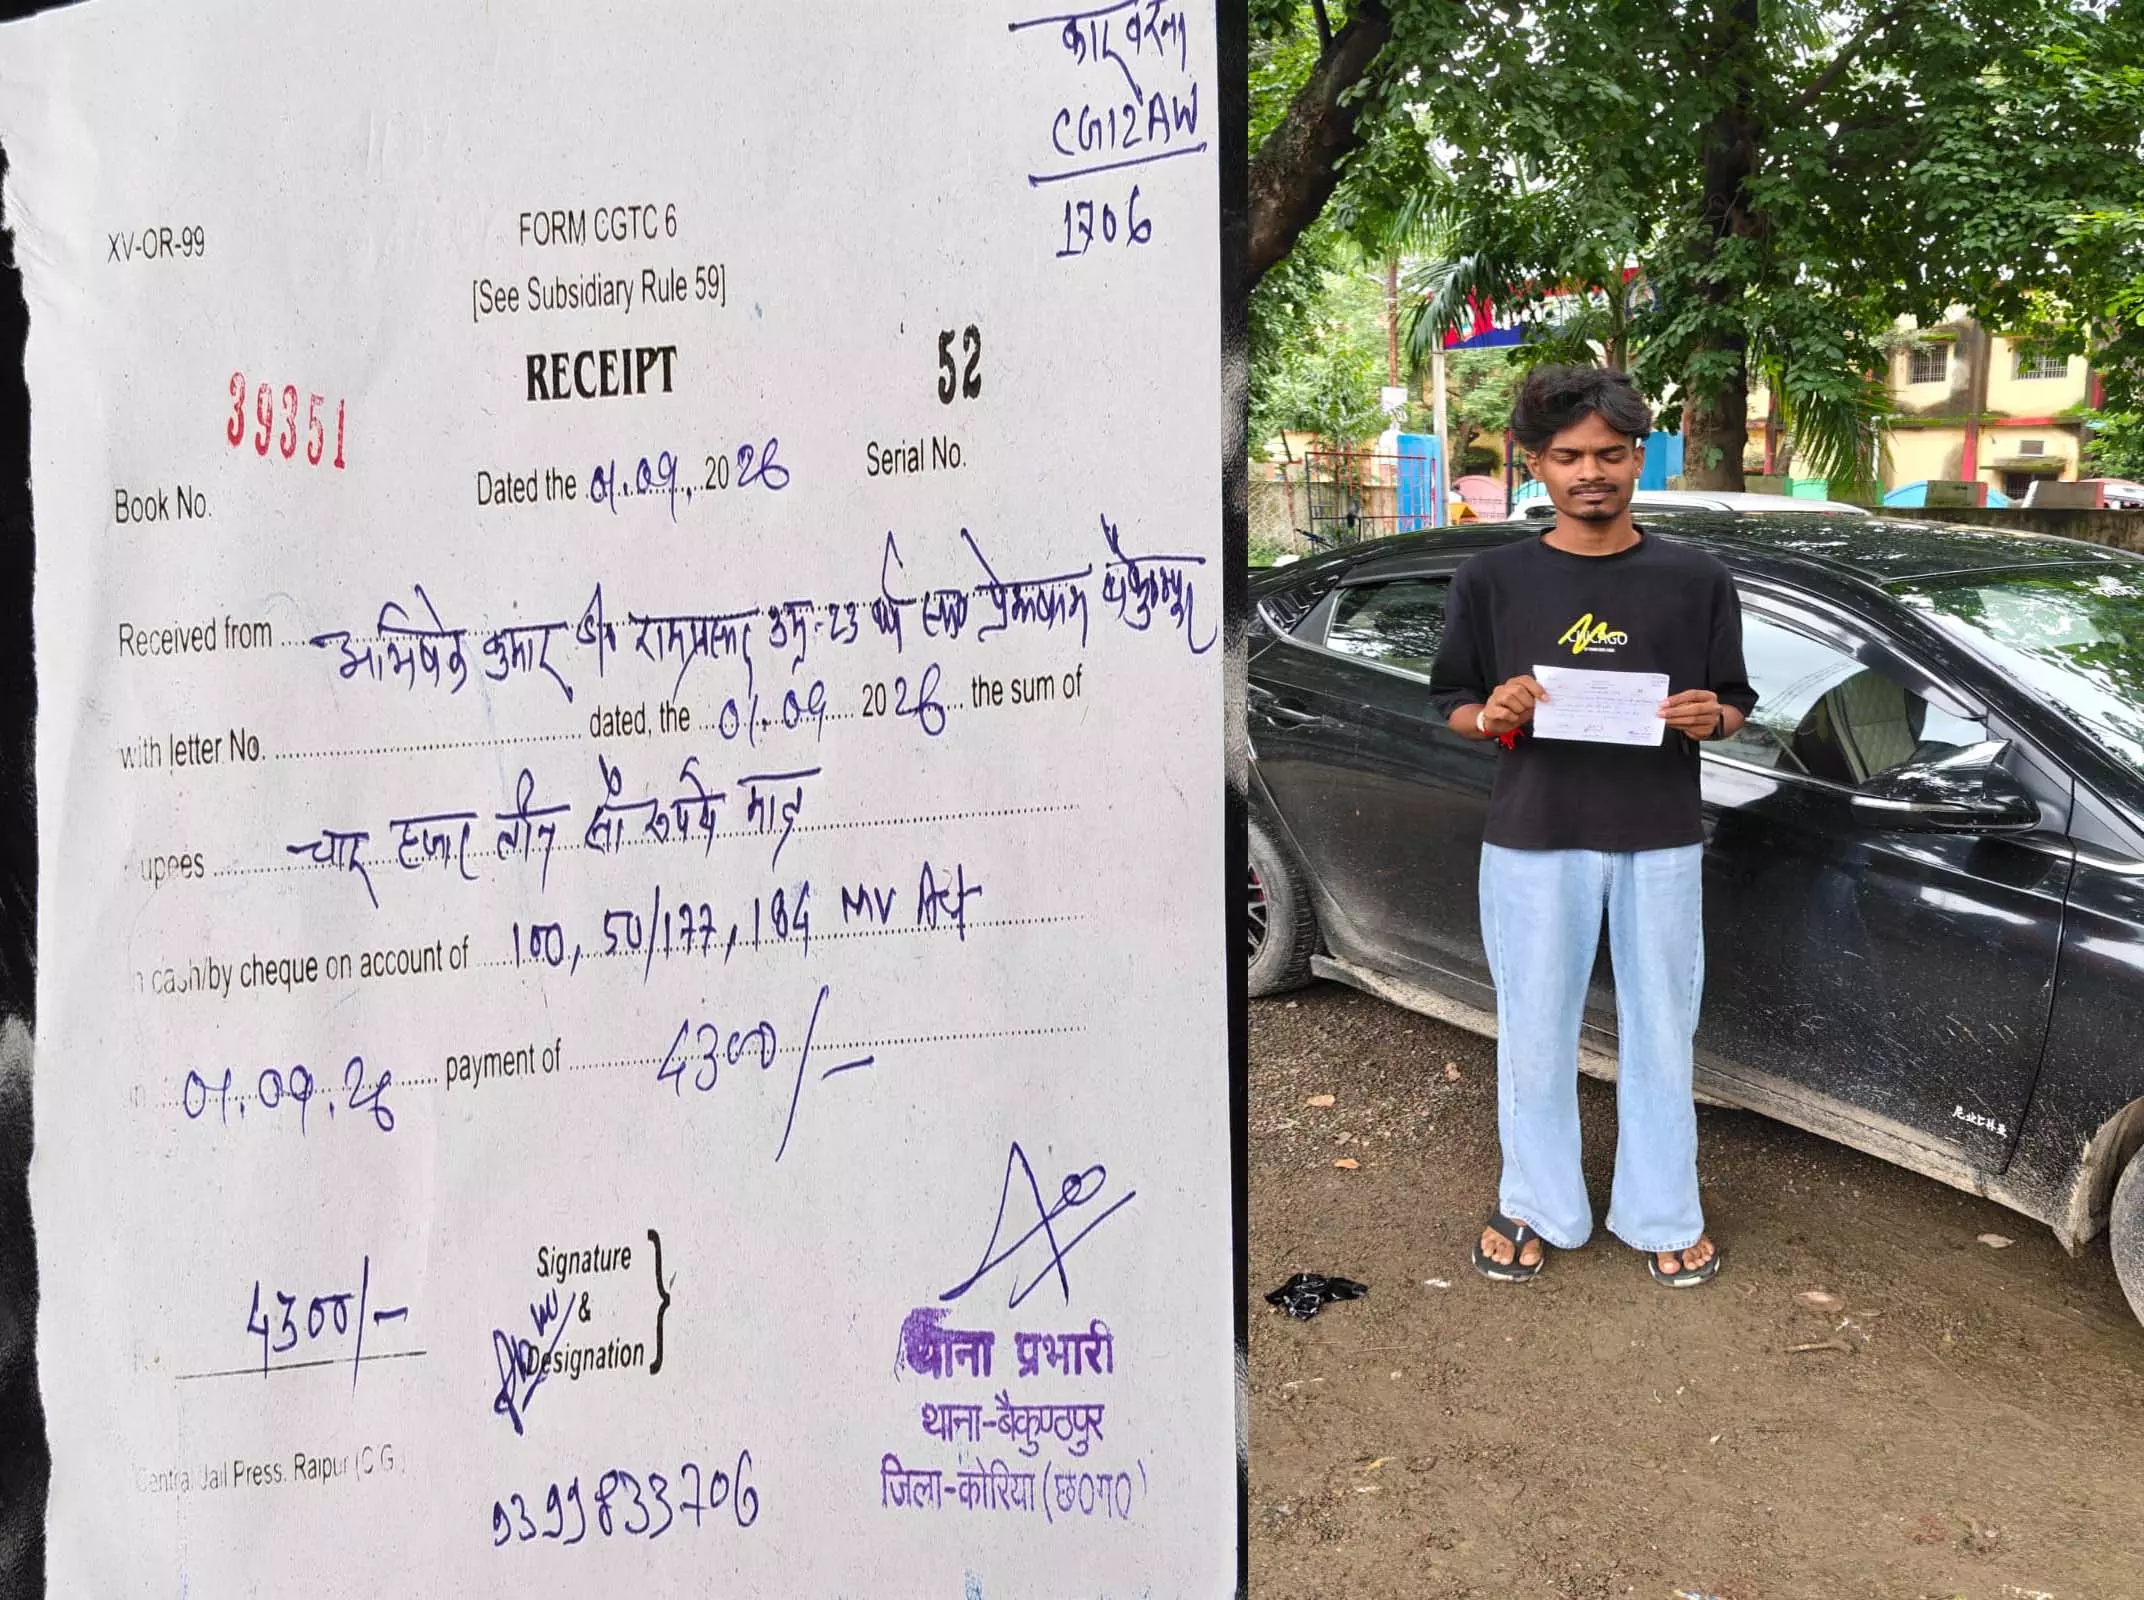 कार वरना
CG12AW
1706
XV-OR-99
FORM CGTC 6
[See Subsidiary Rule 59]
RECEIPT
52
39351
Book No.
Dated the 01.09. 2026
Serial No.
Received from अभिषेक कुमार S/o रामप्रसाद उम्र-23 वर्ष प्रेमाबाग बैकुण्ठपुर
with letter No. dated, the 01.09 2026 the sum of
upees चार हजार तीन सौ रूपये मात्र
cash/by cheque on account of 100, 50/177, 184 MV Act
01.09.26 payment of 4300/-
Signature
&
Designation
4300/-
थाना प्रभारी
थाना-बैकुण्ठपुर
जिला-कोरिया (छ0ग0)
Central Jail Press. Raipur (C G
9399833706
CHICAGO